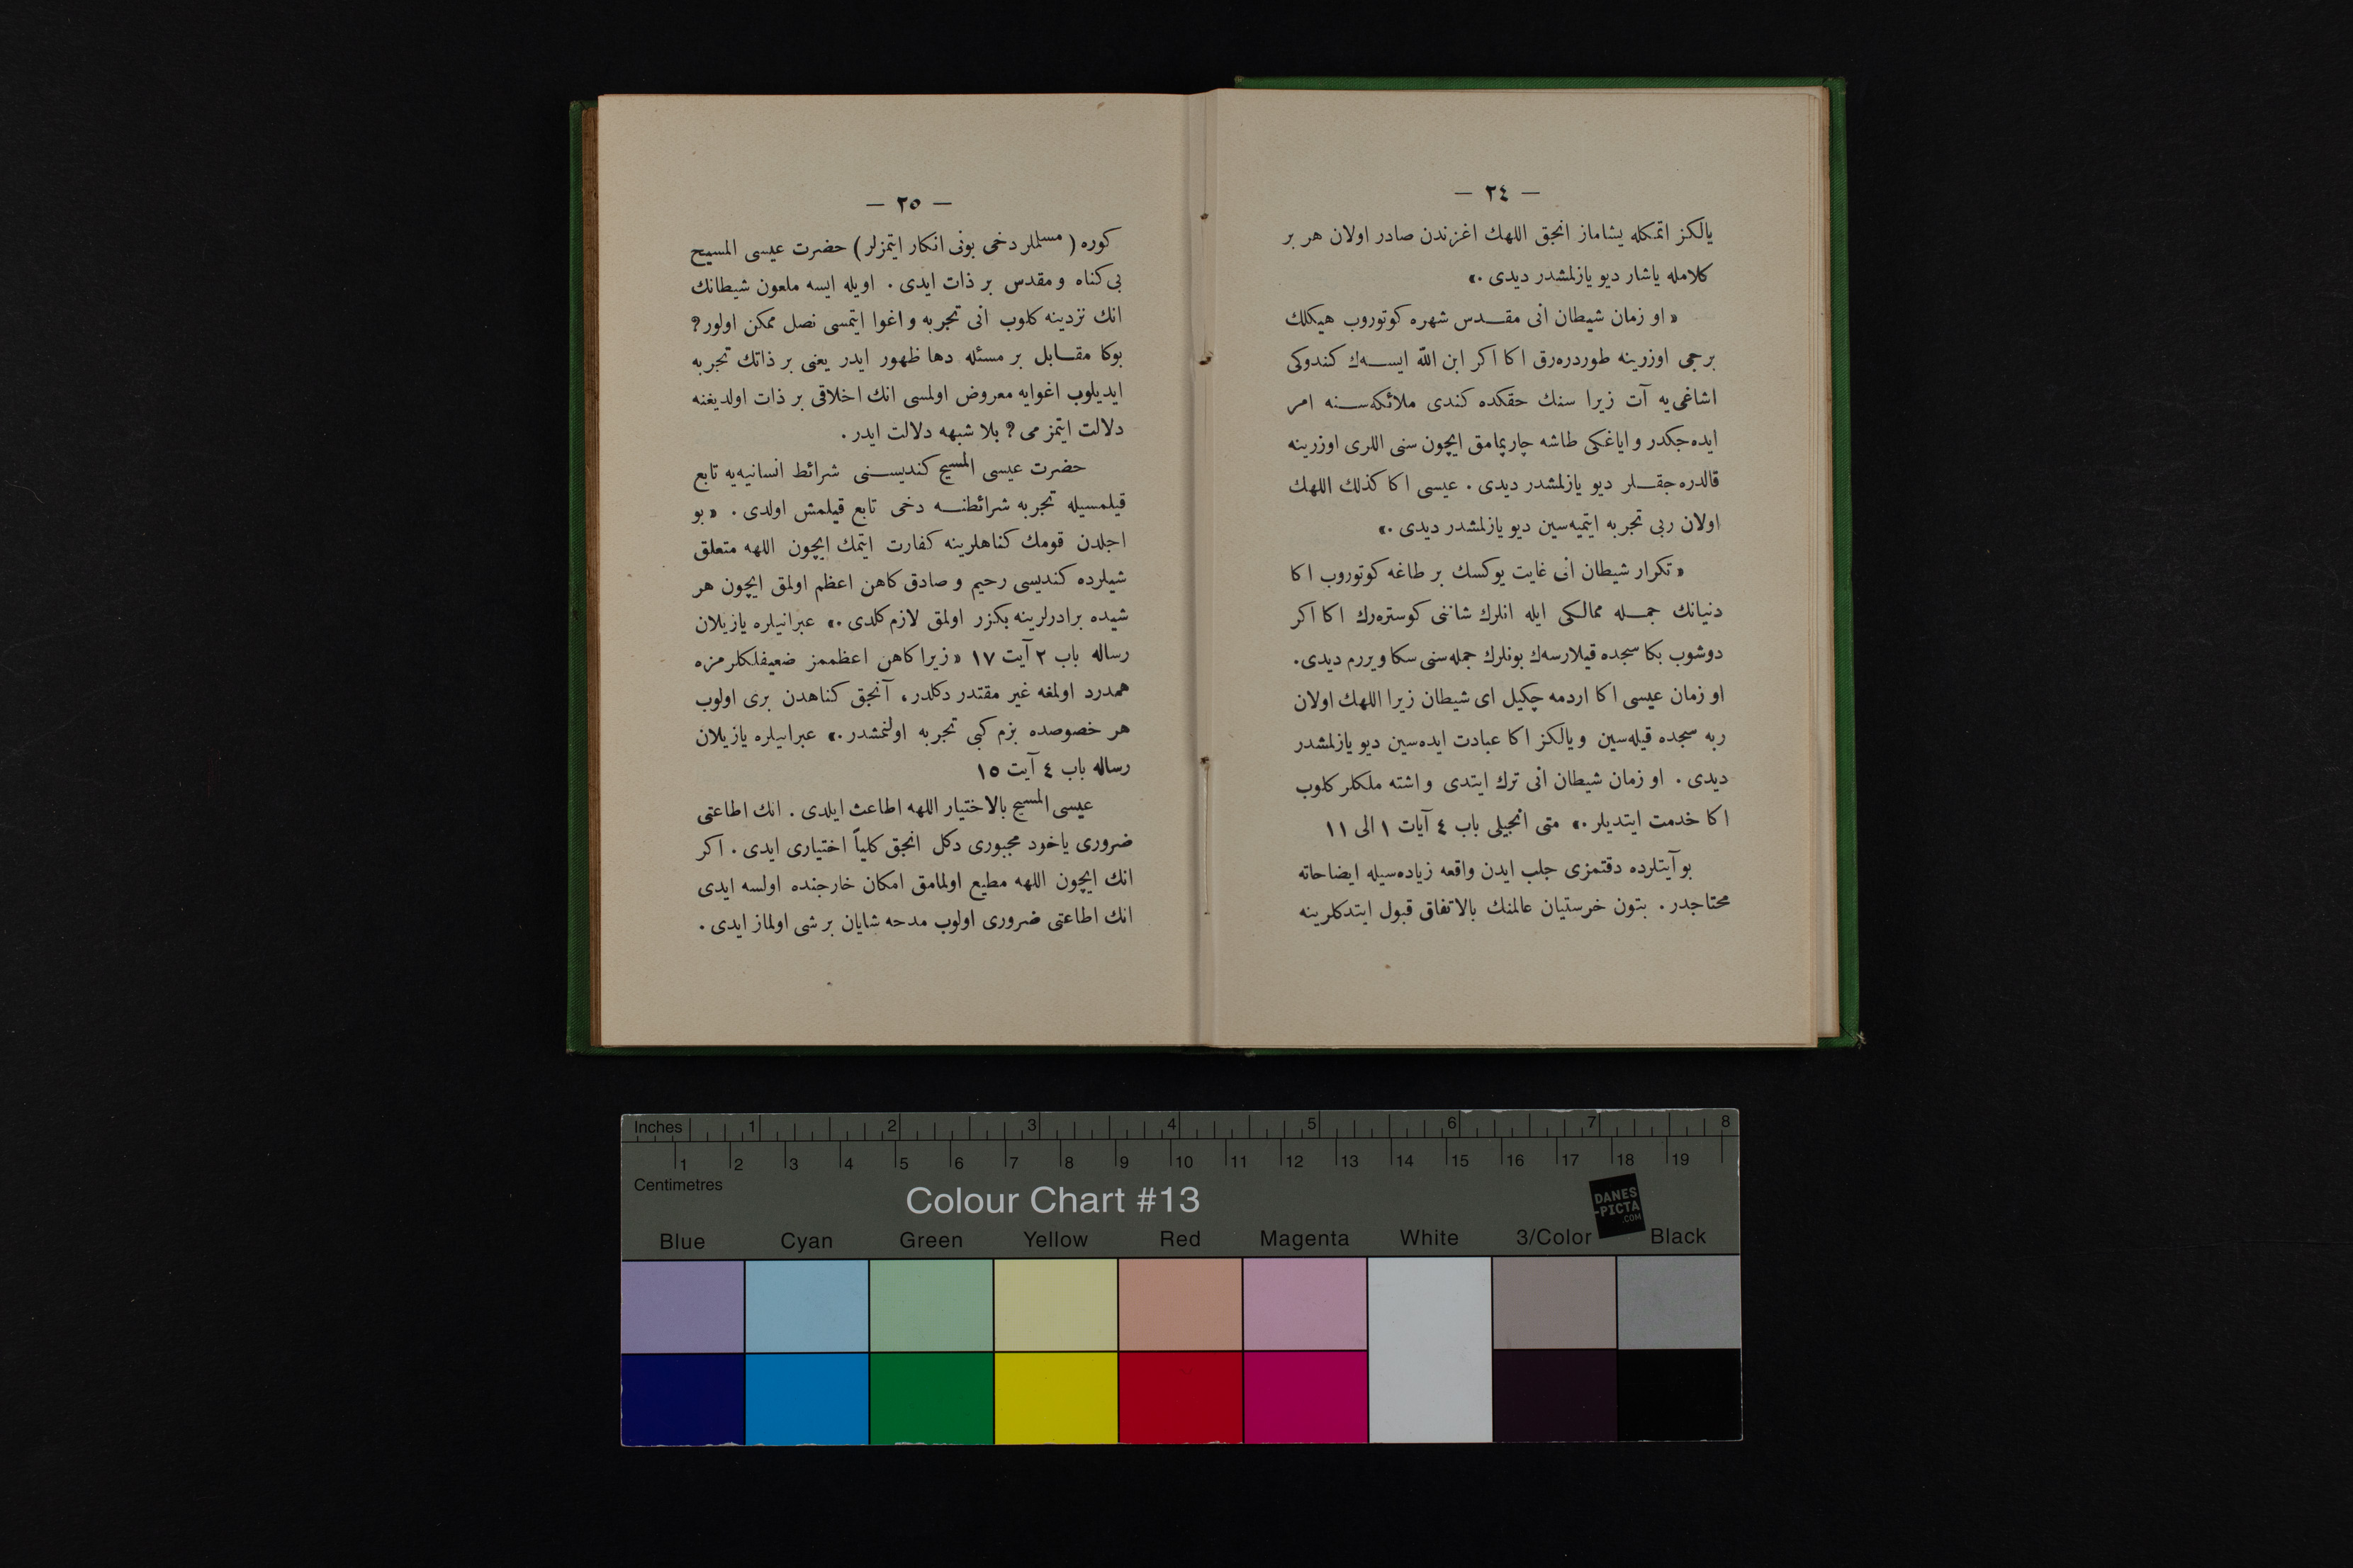 — ٢٤ —
يالكز اتمكله يشاماز انجق اللهك اغزندن صادر اولان هر بر
كلامله ياشار ديو يازلمشدر ديدى .»
« او زمان شيطان انى مقـــدس شهره كوتوروب هيكلك
برجى اوزرينه طوردره‌رق اكا اكر ابن الله ايســـه‌ك كندوكى
اشاغى‌يه آت زيرا سنك حقكده كندى ملائكه‌ســـنه امر
ايده‌جكدر و اياغكى طاشه چارپمامق ايچون سنى اللرى اوزرينه
قالدره‌جقـــلر ديو يازلمشدر ديدى . عيسى اكا كذلك اللهك
اولان ربى تجربه ايتميه‌سين ديو يازلمشدر ديدى .»
« تكرار شيطان انى غايت يوكسك بر طاغه كوتوروب اكا
دنيانك جمـــله ممالكى ايله انلرك شاننى كوستره‌رك اكا اكر
دوشوب بكا سجده قيلارسه‌ك بونلرك جمله‌سنى سكا ويررم ديدى.
او زمان عيسى اكا اردمه چكيل اى شيطان زيرا اللهك اولان
ربه سجده قيله‌سين و يالكز اكا عبادت ايده‌سين ديو يازلمشدر
ديدى . او زمان شيطان انى ترك ايتدى و اشته ملكلر كلوب
اكا خدمت ايتديلر .» متى انجيلى باب ٤ آيات ١ الى ١١
بو آيتلرده دقتمزى جلب ايدن واقعه زياده‌سيله ايضاحاته
محتاجدر . بتون خرستيان عالمنك بالاتفاق قبول ايتدكلرينه
— ٢٥ —
كوره ( مسلملر دخى بونى انكار ايتمزلر ) حضرت عيسى المسيح
بى كناه و مقدس بر ذات ايدى . اويله ايسه ملعون شيطانك
انك نزدينه كلوب انى تجربه و اغوا ايتمسى نصل ممكن اولور?
بوكا مقـــابل بر مسئله دها ظهور ايدر يعنى بر ذاتك تجربه
ايديلوب اغوايه معروض اولمسى انك اخلاقى بر ذات اولديغنه
دلالت ايتمز مى ? بلا شبهه دلالت ايدر .
حضرت عيسى المسيح كنديســـنى شرائط انسانيه‌يه تابع
قيلمسيله تجربه شرائطنـــه دخى تابع قيلمش اولدى . « بو
اجلدن قومك كناهلرينه كفارت ايتمك ايچون اللهه متعلق
شيلرده كنديسى رحيم و صادق كاهن اعظم اولمق ايچون هر
شيده برادرلرينه بكزر اولمق لازم كلدى .» عبرانيلره يازيلان
رساله باب ٢ آيت ١٧ « زيرا كاهن اعظممز ضعيفلكلرمزه
همدرد اولمغه غير مقتدر دكلدر، آنجق كناهدن برى اولوب
هر خصوصده بزم كبى تجربه اولنمشدر .» عبرانيلره يازيلان
رساله باب ٤ آيت ١٥
عيسى المسيح بالاختيار اللهه اطاعت ايلدى . انك اطاعتى
ضرورى ياخود مجبورى دكل انجق كلياً اختيارى ايدى . اكر
انك ايچون اللهه مطيع اولمامق امكان خارجنده اولسه ايدى
انك اطاعتى ضرورى اولوب مدحه شايان بر شى اولماز ايدى .
Inches 1 2 3 4 5 6 7 8
1 2 3 4 5 6 7 8 9 10 11 12 13 14 15 16 17 18 19
Centimetres
Colour Chart #13
DANES
-PICTA
.COM
Blue Cyan Green Yellow Red Magenta White 3/Color Black